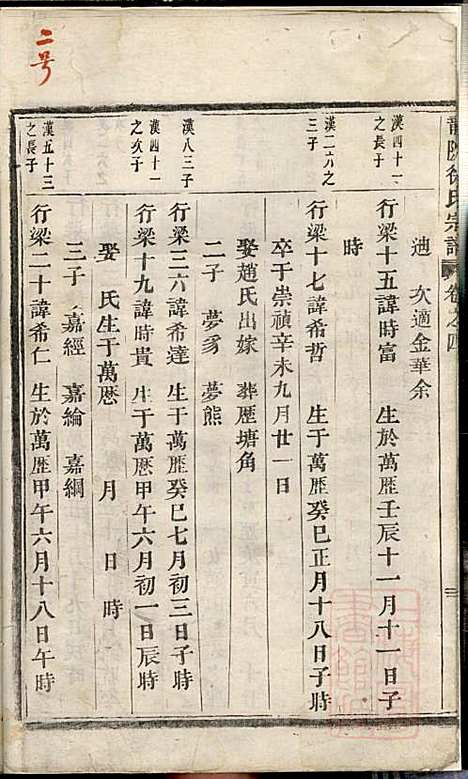 二号
龍陂徐氏宗譜 卷之四
迪 次適金華余
漢四十一
之長子
行梁十五諱時富 生於萬歷壬辰十一月十一日子
時
漢二六之
三子
行梁十七諱希哲 生于萬歷癸巳正月十八日子時
卒于崇禎辛未九月廿一日
娶趙氏出嫁 葬歷塘角
二子 夢豸 夢熊
漢八三子
行梁三六諱希達 生于萬歷癸巳七月初三日子時
漢四十一
之次子
行梁十九諱時貴 生于萬歷甲午六月初一日辰時
娶 氏生于萬歷 月 日 時
三子 嘉經 嘉綸 嘉綱
漢五十三
之長子
行梁二十諱希仁 生於萬歷甲午六月十八日午時